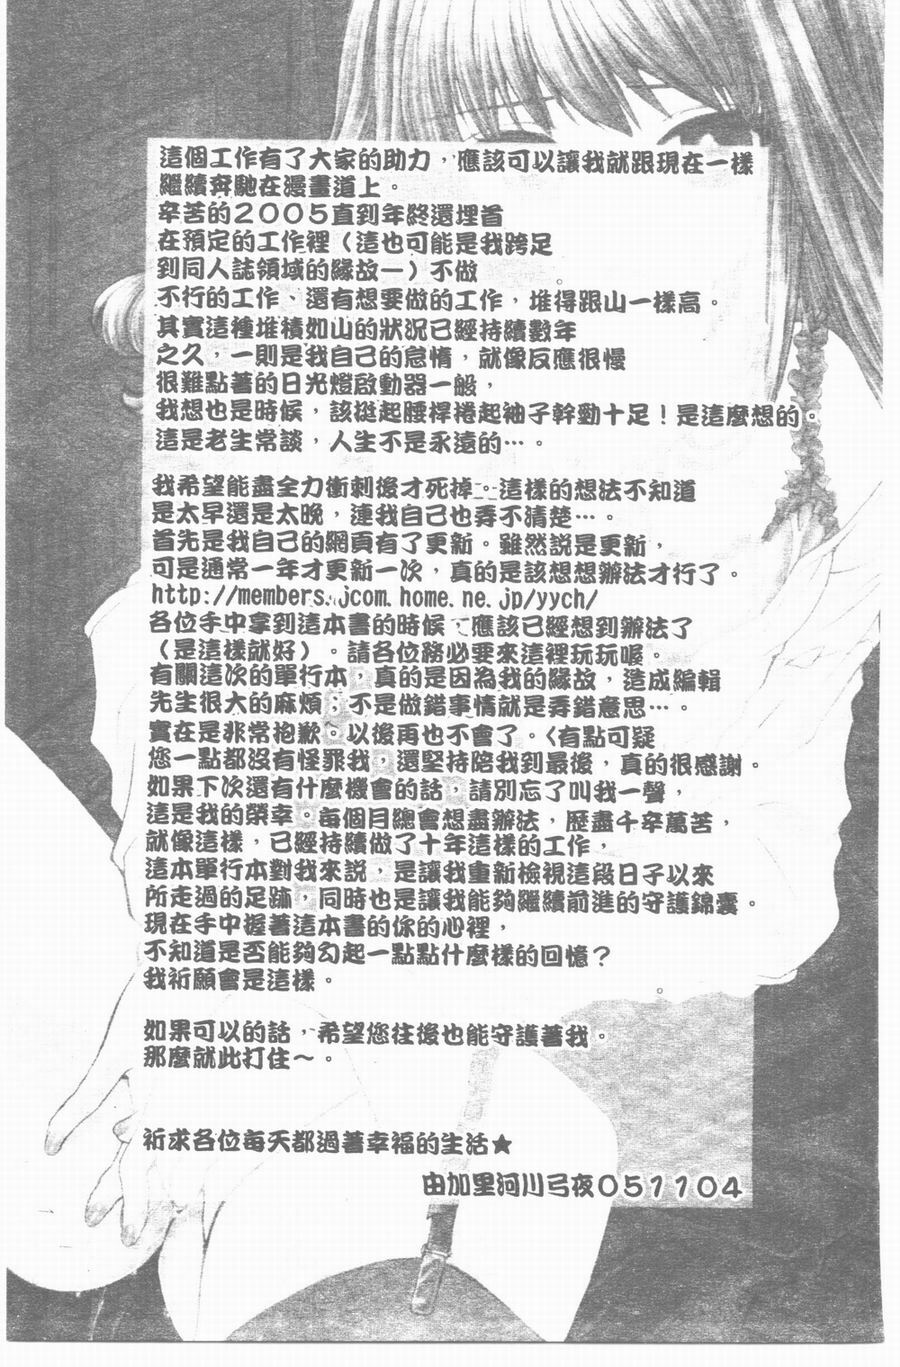 這個工作有了大家的助力，應該可以讓我就跟現在一樣
繼續奔馳在漫畫道上。
辛苦的２００５直到年終還埋首
在預定的工作裡（這也可能是我跨足
到同人誌領域的緣故－）不做
不行的工作、還有想要做的工作，堆得跟山一樣高。
其實這種堆積如山的狀況已經持續數年
之久，一則是我自己的怠惰，就像反應很慢
很難點著的日光燈啟動器一般，
我想也是時候，該挺起腰桿捲起袖子幹勁十足！是這麼想的。
這是老生常談，人生不是永遠的…。
我希望能盡全力衝刺後才死掉。這樣的想法不知道
是太早還是太晚，連我自己也弄不清楚…。
首先是我自己的網頁有了更新。雖然說是更新，
可是通常一年才更新一次，真的是該想想辦法才行了。
http://members.jcom.home.ne.jp/yych/
各位手中拿到這本書的時候，應該已經想到辦法了
（是這樣就好）。請各位務必要來這裡玩玩喔。
有關這次的單行本，真的是因為我的緣故，造成編輯
先生很大的麻煩，不是做錯事情就是弄錯意思…。
實在是非常抱歉。以後再也不會了。〈有點可疑
您一點都沒有怪罪我，還堅持陪我到最後，真的很感謝。
如果下次還有什麼機會的話，請別忘了叫我一聲，
這是我的榮幸。每個月總會想盡辦法，歷盡千辛萬苦，
就像這樣，已經持續做了十年這樣的工作，
這本單行本對我來說，是讓我重新檢視這段日子以來
所走過的足跡，同時也是讓我能夠繼續前進的守護錦囊。
現在手中握著這本書的你的心裡，
不知道是否能夠勾起一點點什麼樣的回憶？
我祈願會是這樣。
如果可以的話，希望您往後也能守護著我。
那麼就此打住～。
祈求各位每天都過著幸福的生活★
由加里河川弓夜０５１１０４